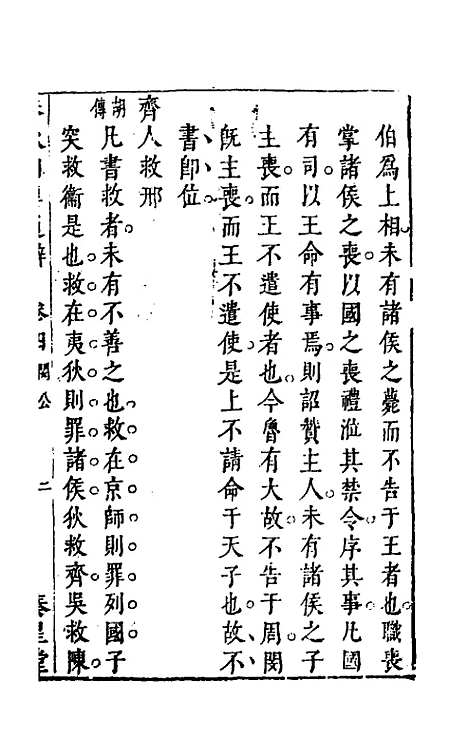 伯爲上相未有諸侯之薨而不告于王者也職喪
掌諸侯之喪以國之喪禮涖其禁令序其事凡國
有司以王命有事焉則詔贊主人未有諸侯之子
主喪而王不遣使者也今魯有大故不告于周閔
旣主喪而王不遣使是上不請命于天子也故不
書卽位
齊人救邢
胡傳凡書救者未有不善之也救在京師則罪列國子
突救衞是也救在夷狄則罪諸侯狄救齊吳救陳
卷四閔公 二